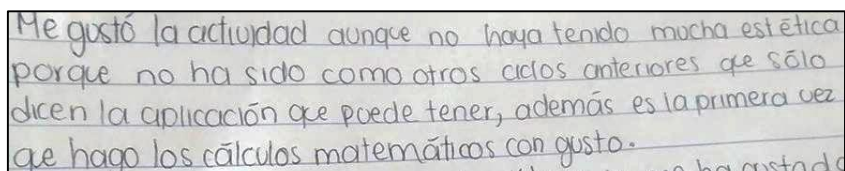 Me gustó la actividad aunque no haya tenido mucha estética
porque no ha sido como otros ciclos anteriores que sólo
dicen la aplicación que puede tener, además es la primera vez
que hago los cálculos matemáticos con gusto.
ha gustado